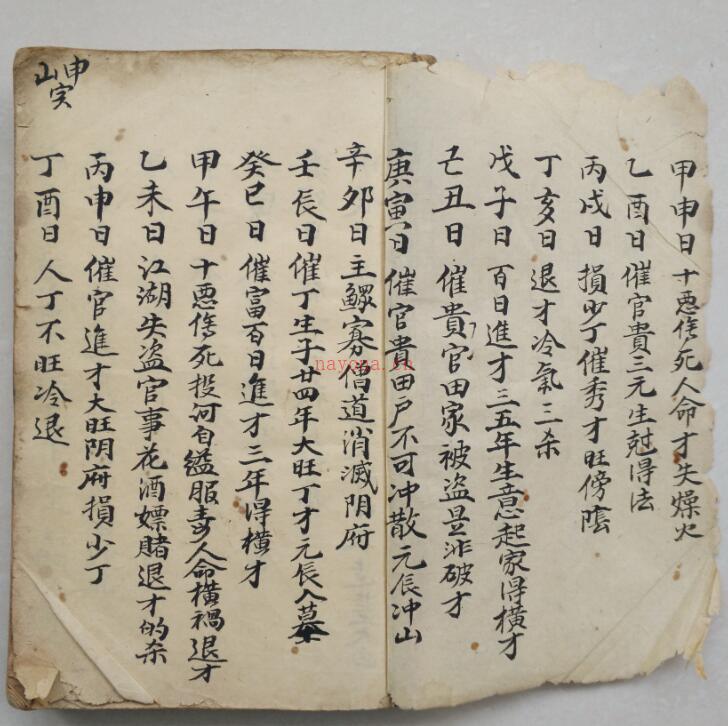 甲申日十悪隽死人命才失燥火
乙酉日催官貴三元生尅得法
丙戌日損少丁催秀才旺傍陰
丁亥日退才冷氣三杀
戊子日百日進才三五年生意起家得横才
己丑日催貴官田家被盗是非破才
庚寅日催官貴田戶不可冲散元辰冲山
辛夘日主鳏寡僧道消滅阴府
壬辰日催丁生子廿四年大旺丁才元辰入墓
癸巳日催富百日進才三年得横才
甲午日十悪隽死投河自缢服毒人命横禍退才
乙未日江湖失盗官事花酒嫖賭退才的杀
丙申日催官進才大旺阴府損少丁
丁酉日人丁不旺冷退
申山
nayona.cn